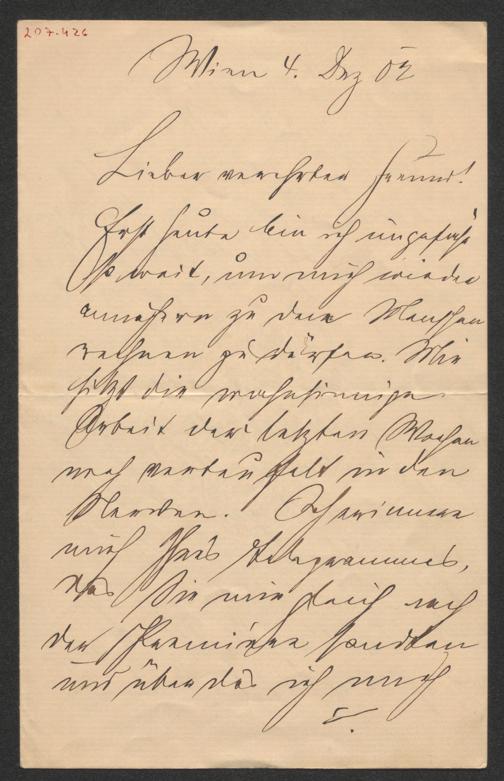 207.426
Wien 4. Dez 02
Lieber verehrter Freund!
Erst heute bin ich ungefähr
so weit, um mich wieder
annähern zu den Menschen
rechnen zu dürfen. Mir
sitzt die wahnsinnige
Arbeit der letzten Wochen
noch verteufelt in den
Nerven. Ich erinnere
mich Ihres Telegrammes,
das Sie mir gleich nach
der Premiére sandten
und über das ich mich